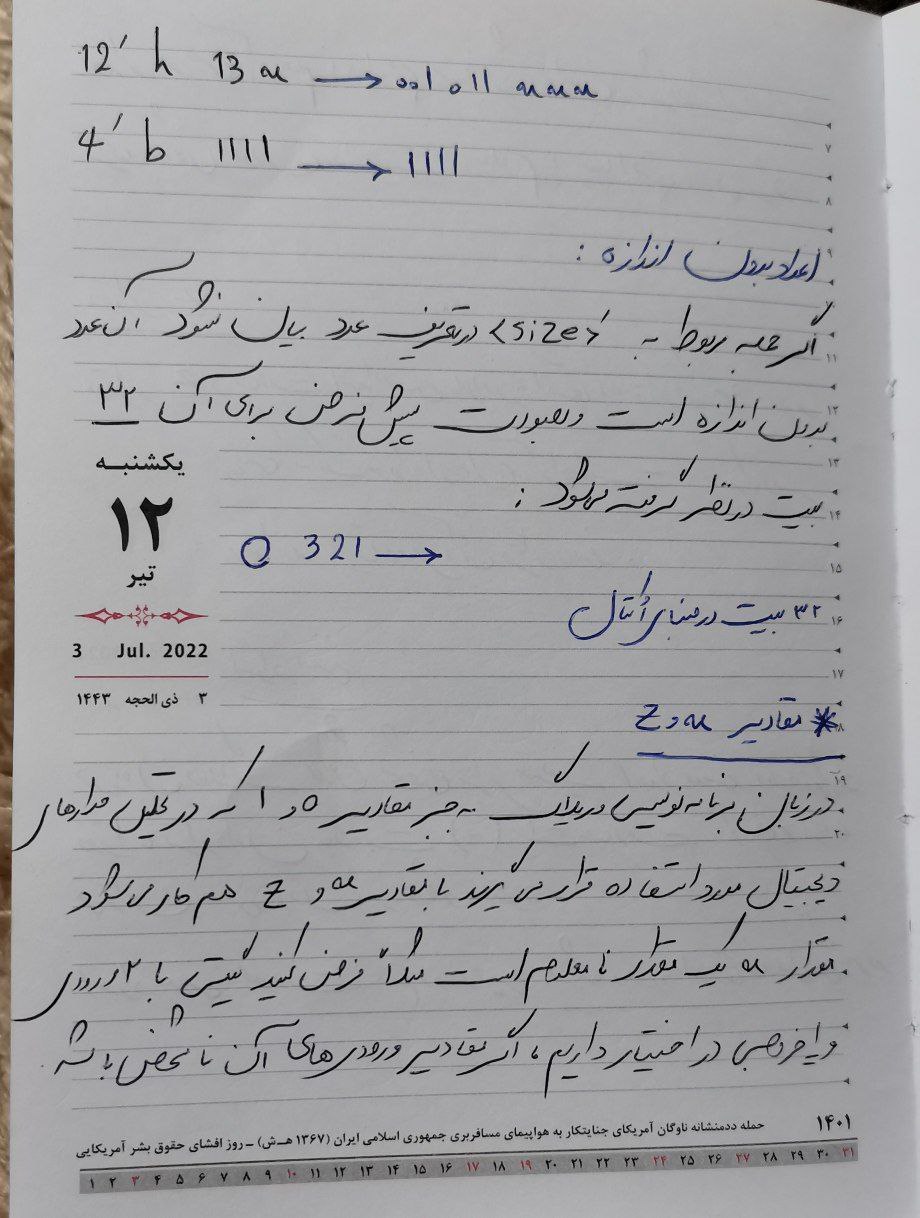 12' h 13x → 0001 0011 xxxx
4' b 1111 → 1111
اعداد بدون اندازه :
اگر جمله مربوط به <size> در تعریف عدد بیان نشود آن عدد
بدون اندازه است و بصورت پیش فرض برای آن ۳۲
بیت در نظر گرفته می‌شود :
یکشنبه
۱۲
تیر
3 Jul. 2022
۳ ذی الحجه ۱۴۴۳
O 321 →
۳۲ بیت در مبنای اُکتال
* مقادیر x و Z
در زبان برنامه نویسی وریلاگ به جز مقادیر ۰ و ۱ که در تحلیل مدارهای
دیجیتال مورد استفاده قرار می گیرند با مقادیر x و Z هم کار می‌شود
مقدار x یک مقدار نا معلوم است مثلاً فرض کنید گیتی با ۲ ورودی
و یا خروجی در اختیار داریم، اگر مقادیر ورودی های آن نا مشخص باشد
۷
۸
۹
۱۱
۱۲
۱۳
۱۴
۱۵
۱۶
۱۷
۱۸
۱۹
۲۰
۱۴۰۱
حمله ددمنشانه ناوگان آمریکای جنایتکار به هواپیمای مسافربری جمهوری اسلامی ایران (۱۳۶۷ هـ‌ش) – روز افشای حقوق بشر آمریکایی
۱ ۲ ۳ ۴ ۵ ۶ ۷ ۸ ۹ ۱۰ ۱۱ ۱۲ ۱۳ ۱۴ ۱۵ ۱۶ ۱۷ ۱۸ ۱۹ ۲۰ ۲۱ ۲۲ ۲۳ ۲۴ ۲۵ ۲۶ ۲۷ ۲۸ ۲۹ ۳۰ ۳۱